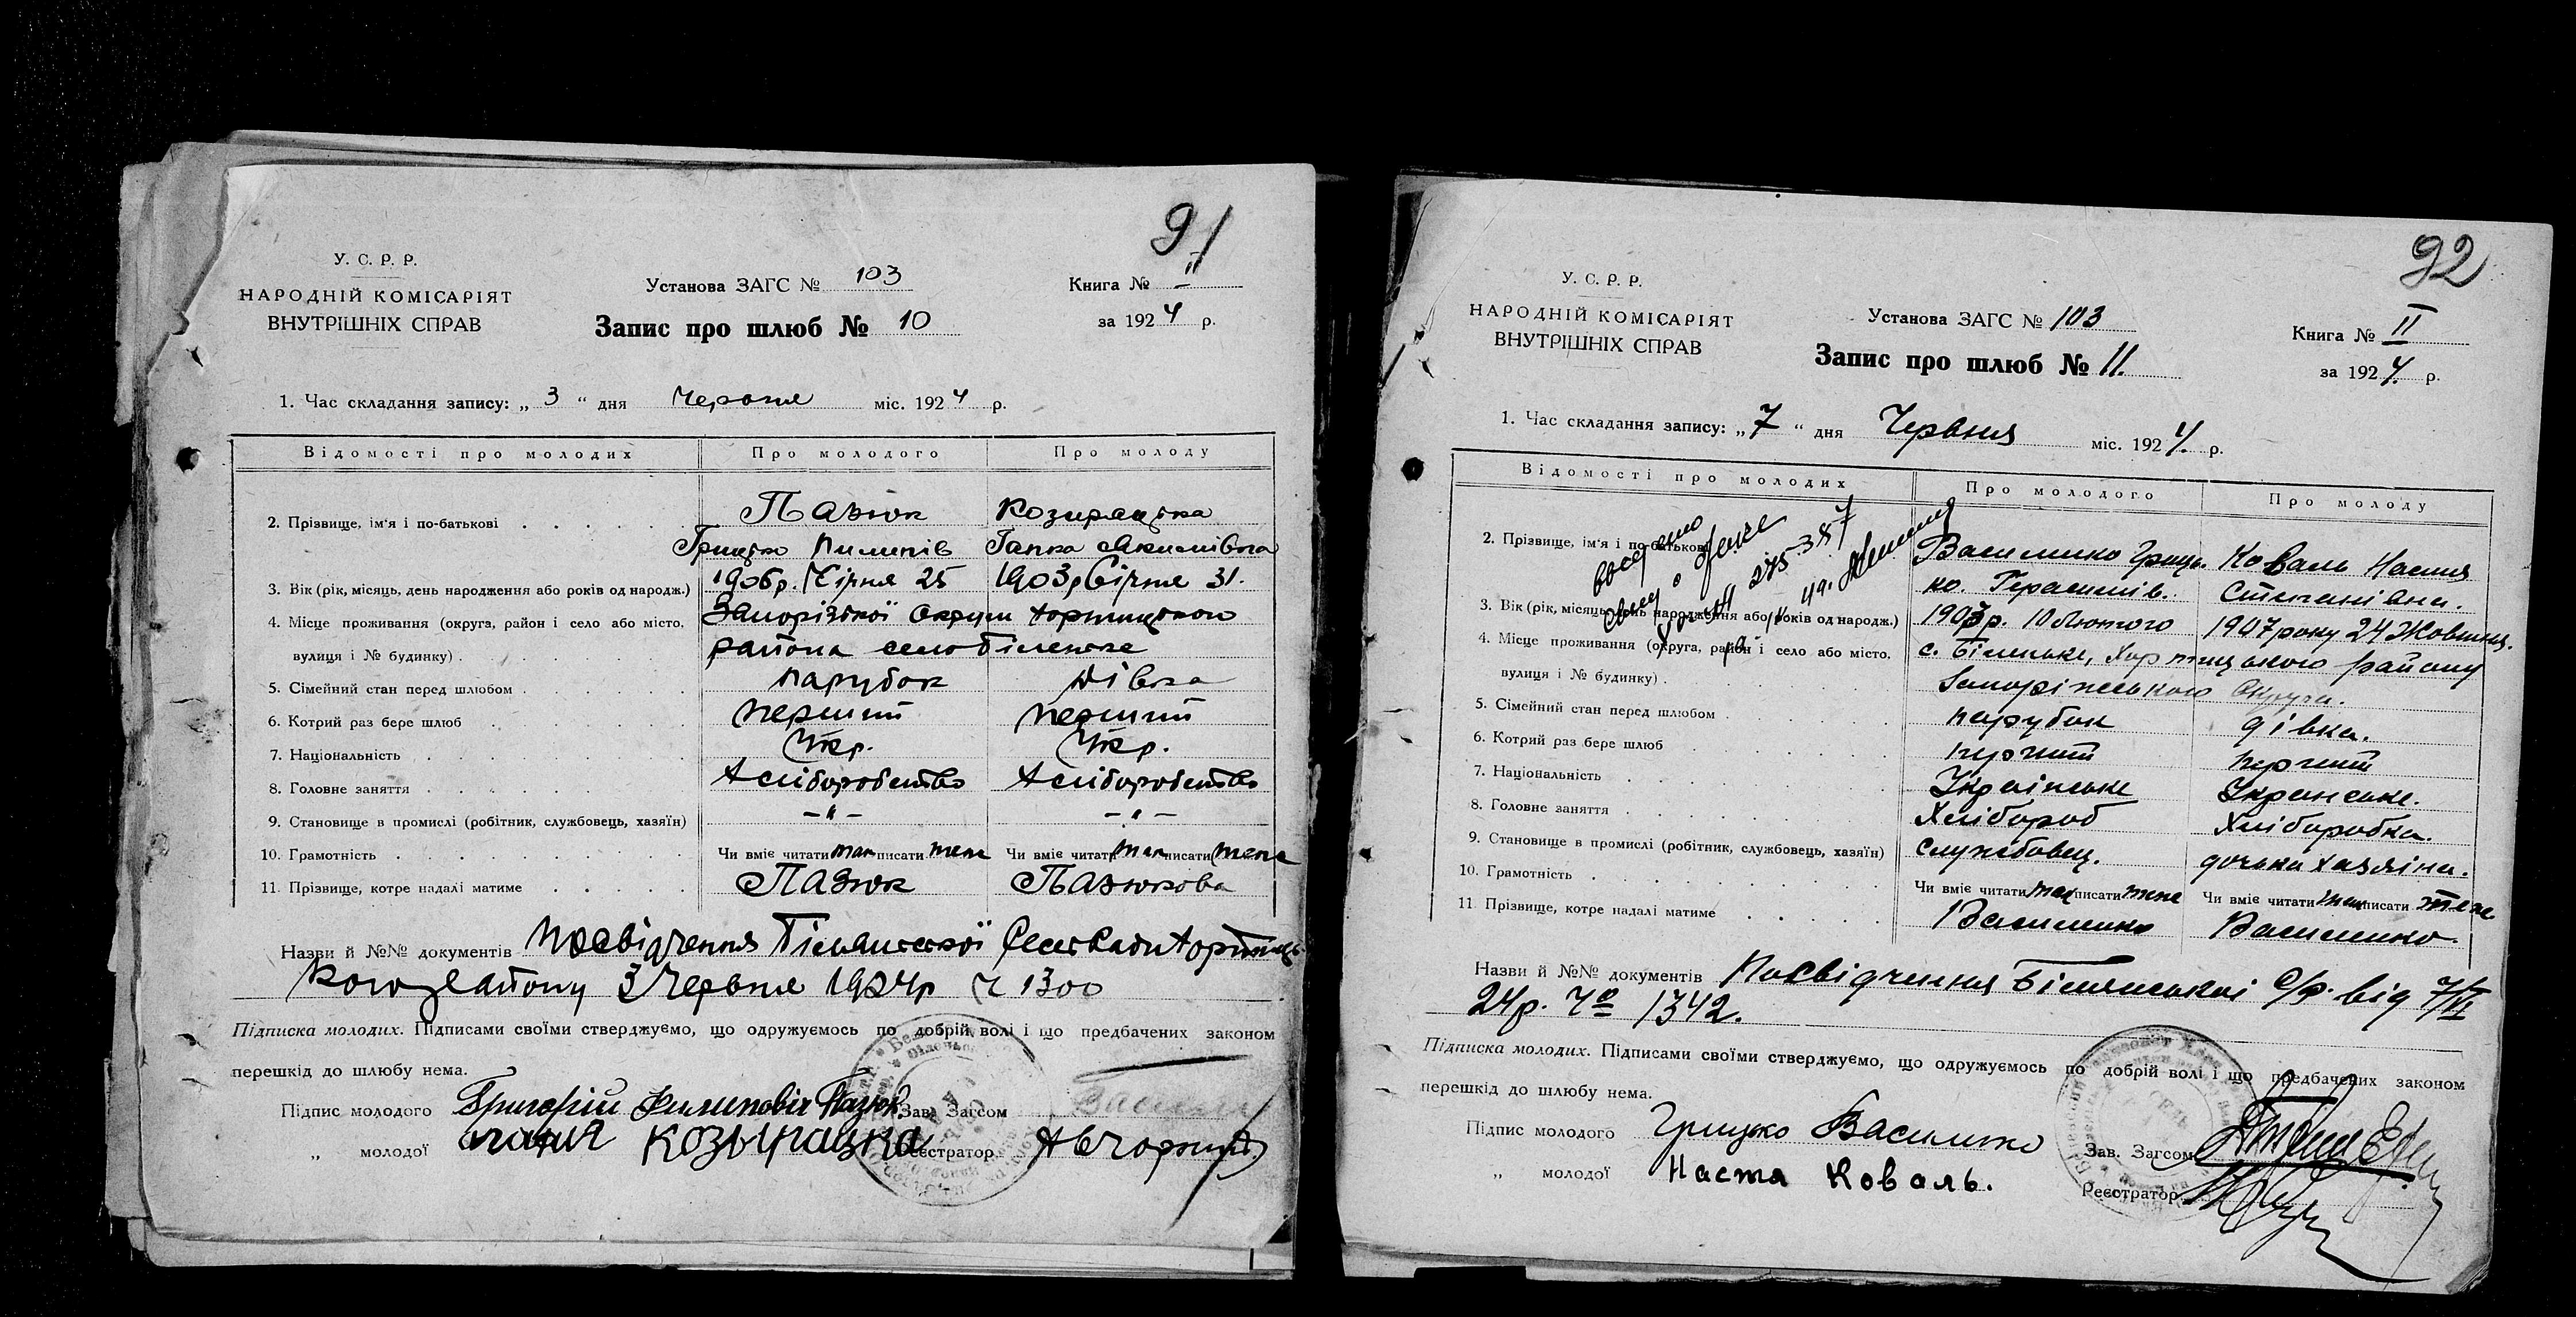 91
У. С. Р. Р.
НАРОДНІЙ КОМІСАРІЯТ
ВНУТРІШНІХ СПРАВ
Установа ЗАГС № 103
Запис про шлюб № 10
Книга № II
за 1924 р.
1. Час складання запису: „ 3 “ дня Червня міс. 1924 р.
Відомості про молодих Про молодого Про молоду
2. Прізвище, ім'я і по-батькові Пазюк Козирацька
Грицько Пилипів Гапка Якимівна
3. Вік (рік, місяць, день народження або років од народж.) 1906 р. Січня 25 1903 р Січня 31.
4. Місце проживання (округа, район і село або місто, Запорізької округи Хортицького
вулиця і № будинку) района село Біленьке
5. Сімейний стан перед шлюбом парубок дівка
6. Котрий раз бере шлюб перший перший
7. Національність Укр. Укр.
8. Головне заняття Хліборобство Хліборобство
9. Становище в промислі (робітник, службовець, хазяїн) –"– –"–
10. Грамотність Чи вміє читати так писати теж Чи вміє читати так писати теж
11. Прізвище, котре надалі матиме Пазюк Пазюкова
Назви й №№ документів Посвідчення Біляньської СельРади Хортиць-
кого району 3 Червня 1924р Ч 1300
Підписка молодих. Підписами своїми стверджуємо, що одружуємось по добрій волі і що предбачених законом
перешкід до шлюбу нема.
Підпис молодого Григорій Филипович Пазюк Зав. Загсом
„ молодої козырацка Реєстратор
92
У. С. Р. Р.
НАРОДНІЙ КОМІСАРІЯТ
ВНУТРІШНІХ СПРАВ
Установа ЗАГС № 103
Запис про шлюб № 11.
Книга № II
за 1924. р.
1. Час складання запису: „ 7 “ дня Червня міс. 1924. р.
Відомості про молодих Про молодого Про молоду
2. Прізвище, ім'я і по-батькові Василенко Гриць- Коваль Настя
ко Герасимів. Степанівна.
3. Вік (рік, місяць, день народження або років од народж.) 1903р. 10 Лютого 1907 року 24 Жовтня.
4. Місце проживання (округа, район і село або місто, с. Біленьке, Хортицького району
вулиця і № будинку) Запоріжського Округа.
5. Сімейний стан перед шлюбом парубок дівка.
6. Котрий раз бере шлюб перший перший
7. Національність Українське Українське.
8. Головне заняття Хлібороб Хліборобка.
9. Становище в промислі (робітник, службовець, хазяїн) службовец. дочька хазяіна.
10. Грамотність Чи вміє читати так писати теж Чи вміє читати так писати теж
11 Прізвище, котре надалі матиме Василенко Василенко.
Назви й №№ документів Посвідчення Біляньськоі С/р. від 7/VI
24р. Чо 1342.
Підписка молодих. Підписами своїми стверджуємо, що одружуємось по добрій волі і що предбачених законом
перешкід до шлюбу нема.
Підпис молодого Грицько Василенко Зав. Загсом
„ молодої Настя Коваль. Реєстратор